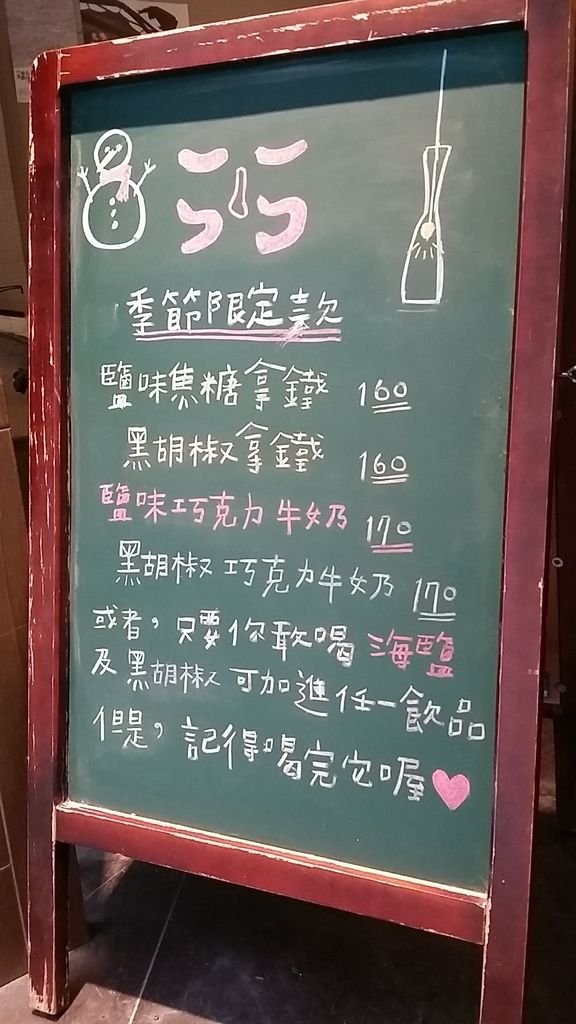 季節限定款
鹽味焦糖拿鐵 160
黑胡椒拿鐵 160
鹽味巧克力牛奶 170
黑胡椒巧克力牛奶 170
或者，只要你敢喝海鹽
及黑胡椒可加進任一飲品
但是，記得喝完它喔